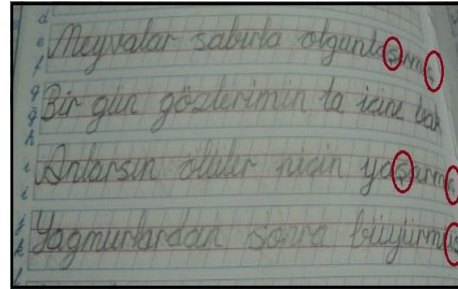 d
e Meyvalar sabırla olgunlaşırmış
f
g Bir gün gözlerimin ta içine bak
ğ
h
ı Anlarsın ölüler niçin yaşarmış
i
j Yağmurlardan sonra büyürmüş
k
l